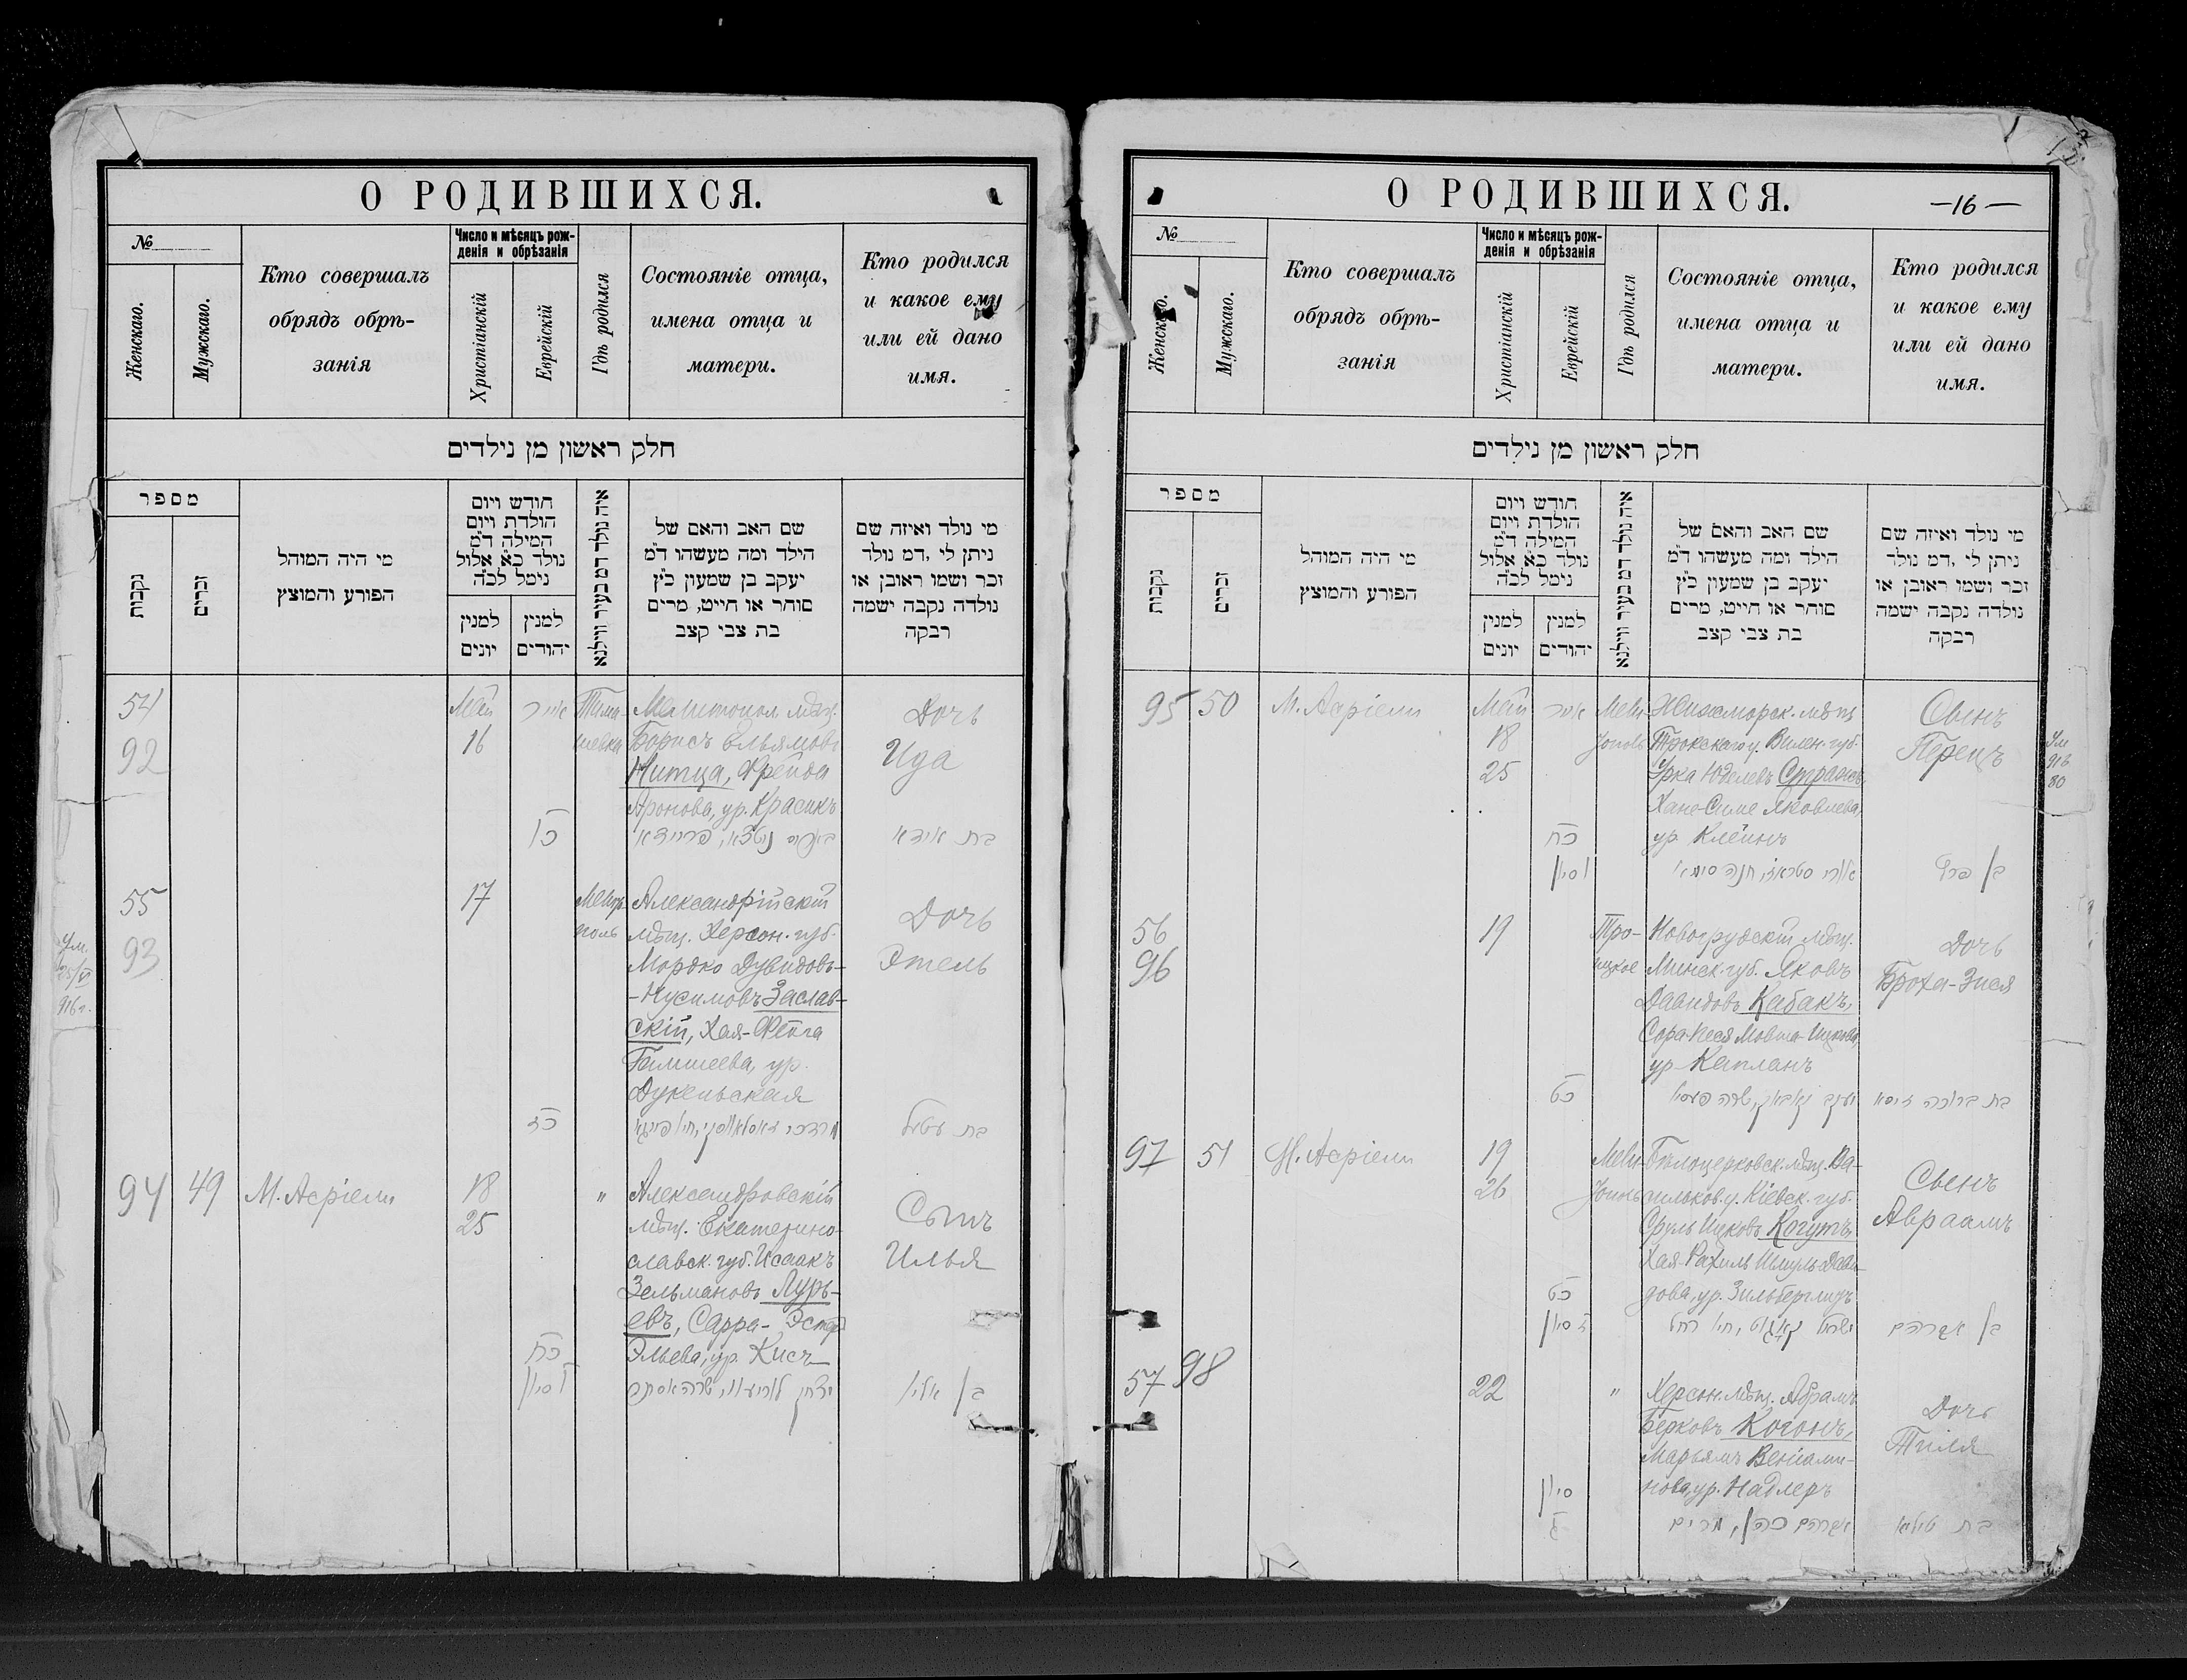 О РОДИВШИХСЯ.
№
Женскаго.
Мужскаго.
Кто совершалъ
обрядъ обрѣ-
занія
Число и мѣсяцъ рож-
денія и обрѣзанія
Христіанскій
Еврейскій
Гдѣ родился
Состояніе отца,
имена отца и
матери.
Кто родился
и какое ему
или ей дано
имя.
חלק ראשון מן נילדים
מספר
נקבות
זכרים
מי היה המוהל
הפורע והמוצץ
חודש ויום
הולדת ויום
המילה ד"מ
נולד כ"א אלול
נימל לכ"ה
למנין
יונים
למנין
יהודים
איה נולד דמ בעיר ווילנא
שם האב והאם של
הילד ומה מעשהו ד"מ
יעקב בן שמעון כ"ץ
סוחר או חייט, מרים
בת צבי קצב
מי נולד ואיזה שם
ניתן לי ,דמ נולד
זכר ושמו ראובן או
נולדה נקבה ישמה
רבקה
54
92
Май
16
אייר
Мелитопол. мѣщ.
Борисъ
Нитца, Фрейда
Аронова, ур. Красикъ
Дочь
Ида
בת אידא
55
93
Ум.
916 г.
17
Мелито-
поль
Александрійскій
мѣщ. Херсон. губ.
Мордко Дувидовъ-
-Нусимовъ Заслав-
скій, Хая-Фейга
ур.
Дукельская
Дочь
Этель
כז
94 49
М. Асріели
18
25
"
Александровскій
мѣщ. Екатерино-
славск. губ. Исаакъ
Зельмановъ Лурь-
евъ, Сарра-Эстер
Эльева, ур. Кисъ
Сынъ
Илья
כח
ו סיון
בן אליי
О РОДИВШИХСЯ.
—16—
№
Женскаго.
Мужскаго.
Кто совершалъ
обрядъ обрѣ-
занія
Число и мѣсяцъ рож-
денія и обрѣзанія
Христіанскій
Еврейскій
Гдѣ родился
Состояніе отца,
имена отца и
матери.
Кто родился
и какое ему
или ей дано
имя.
חלק ראשון מן נילדים
מספר
נקבות
זכרים
מי היה המוהל
הפורע והמוצץ
חודש ויום
הולדת ויום
המילה ד"מ
נולד כ"א אלול
נימל לכ"ה
למנין
יונים
למנין
יהודים
איה נולד דמ בעיר ווילנא
שם האב והאם של
הילד ומה מעשהו ד"מ
יעקב בן שמעון כ"ץ
סוחר או חייט, מרים
בת צבי קצב
מי נולד ואיזה שם
ניתן לי ,דמ נולד
זכר ושמו ראובן או
נולדה נקבה ישמה
רבקה
95 50
М. Асріели
Май
18
25
אייר
Жижморск. мѣщ.
Трокскаго у. Вилен. губ.
Юделевъ Стражъ
Хана-Симе Яковлева,
ур. Клейнъ
Сынъ
Перецъ
Ум
916
80
כח
ו סיון
בן פרץ
56
96
19
Тро-
ицкое
Новогрудскій мѣщ.
Минск. губ. Яковъ
Давидовъ Кабакъ,
Сора-Песя
ур. Капланъ
Дочь
Броха-Зися
כט
בת ברוכה זיסא
97 51
М. Асріели
19
26
Бѣлоцерковск. мѣщ. Ва-
сильков. у. Кіевск. губ.
Сруль Ицковъ Когутъ,
Хая-Рахиль Шмуль-Дави-
дова, ур. Зильберлидъ
Сынъ
Авраамъ
כט
ז סיון
בן אברהם
57 98
22
"
Херсон. мѣщ. Абрамъ
Берковъ Когонъ,
Марьямъ Веніами-
нова, ур. Надлеръ
Дочь
Тиля
סיון
אברהם כהן, מרים
בת טילא